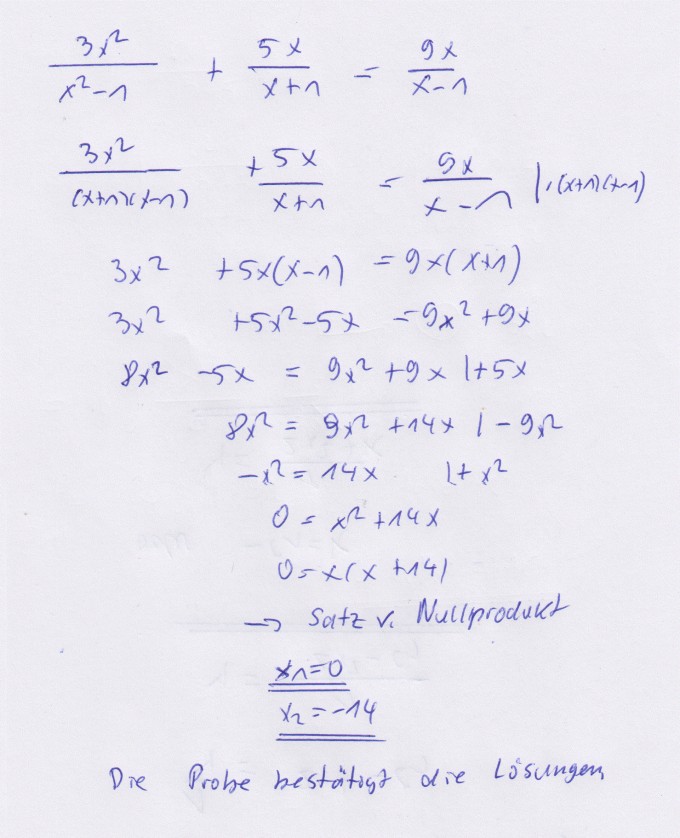 3x²/(x²-1) + 5x/(x+1) = 9x/(x-1)
3x²/((x+1)(x-1)) + 5x/(x+1) = 9x/(x-1) |·(x+1)(x-1)
3x² +5x(x-1) = 9x(x+1)
3x² +5x²-5x =9x²+9x
8x² -5x = 9x²+9x |+5x
8x² = 9x² +14x |-9x²
-x²= 14x |+x²
0 = x²+14x
0=x(x+14)
→ Satz v. Nullprodukt
x1=0
x2=-14
Die Probe bestätigt die Lösungen